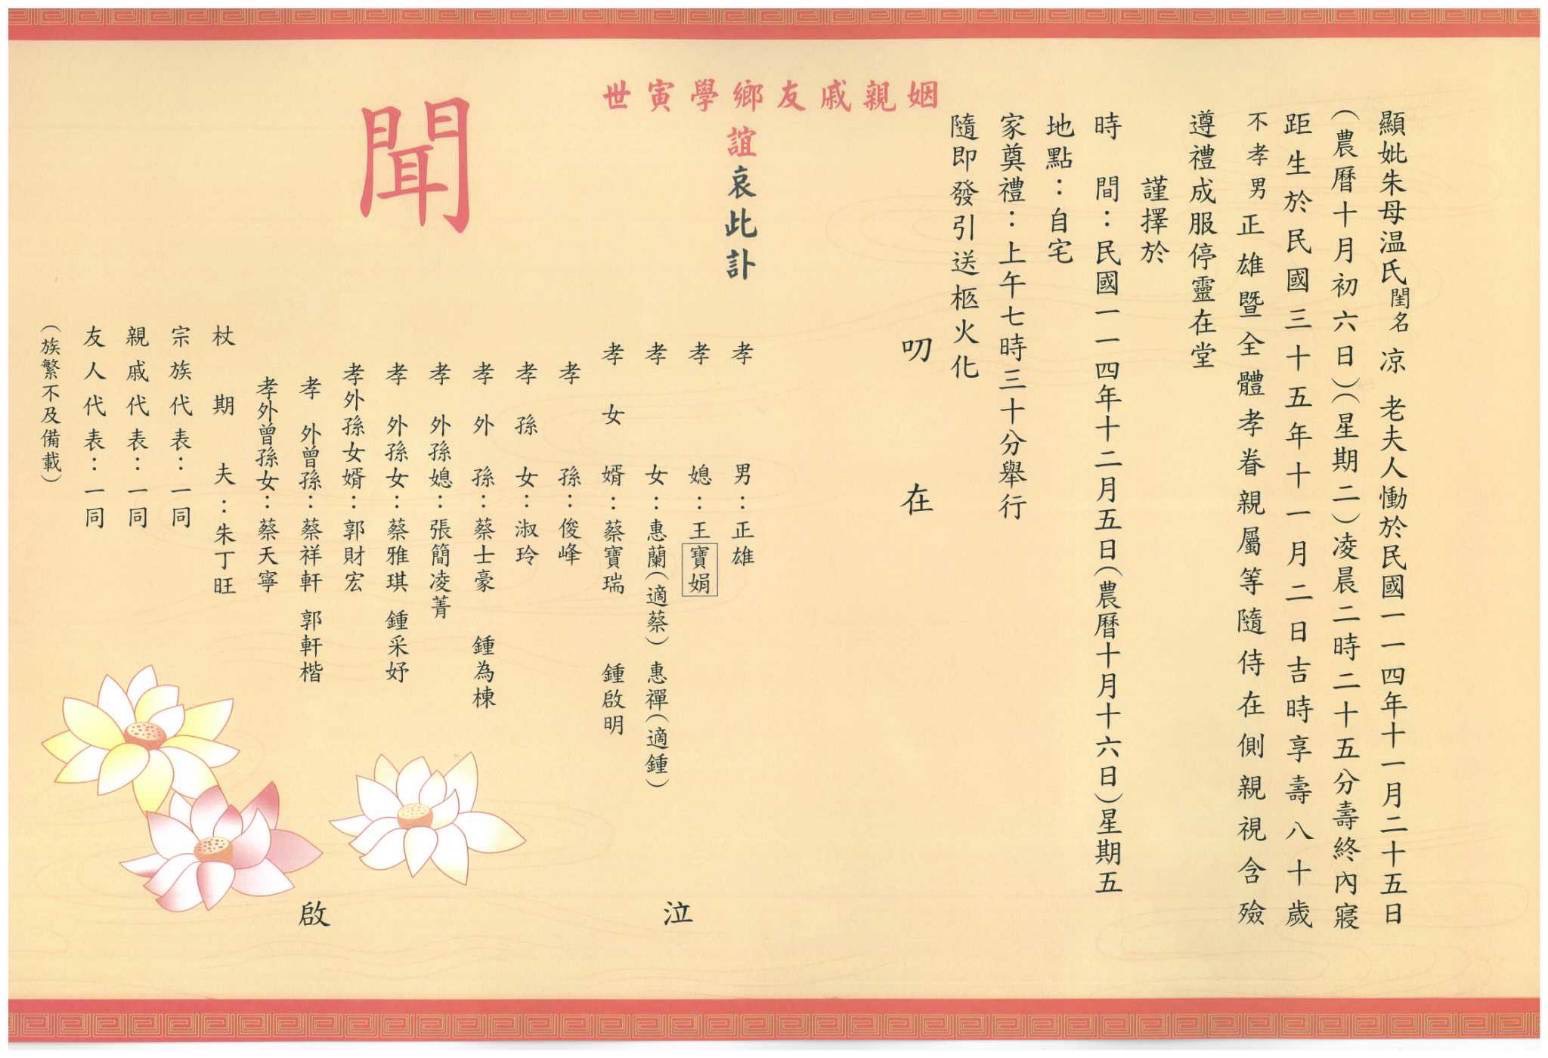 顯妣朱母温氏閨名凉 老夫人慟於民國一一四年十一月二十五日
(農曆十月初六日)(星期二)凌晨二時二十五分壽終內寢
距生於民國三十五年十一月二日吉時享壽八十歲
不孝男正雄暨全體孝眷親屬等隨侍在側親視含殮
遵禮成服停靈在堂
謹擇於
時 間：民國一一四年十二月五日(農曆十月十六日)星期五
地點：自宅
家奠禮：上午七時三十分舉行
隨即發引送柩火化
叨 在
姻親戚友鄉學寅世
誼哀此訃
聞
孝 男：正雄
孝 媳：王寶娟
孝 女：惠蘭(適蔡) 惠禪(適鍾)
孝 女 婿：蔡寶瑞 鍾啟明
孝 孫：俊峰
孝 孫 女：淑玲
孝 外 孫：蔡士豪 鍾為棟
孝 外孫媳：張簡凌菁
孝 外孫女：蔡雅琪 鍾采妤
孝外孫女婿：郭財宏
孝 外曾孫：蔡祥軒 郭軒楷
孝外曾孫女：蔡天寧
杖 期 夫：朱丁旺
宗族代表：一同
親戚代表：一同
友人代表：一同
(族繁不及備載)
泣 啟